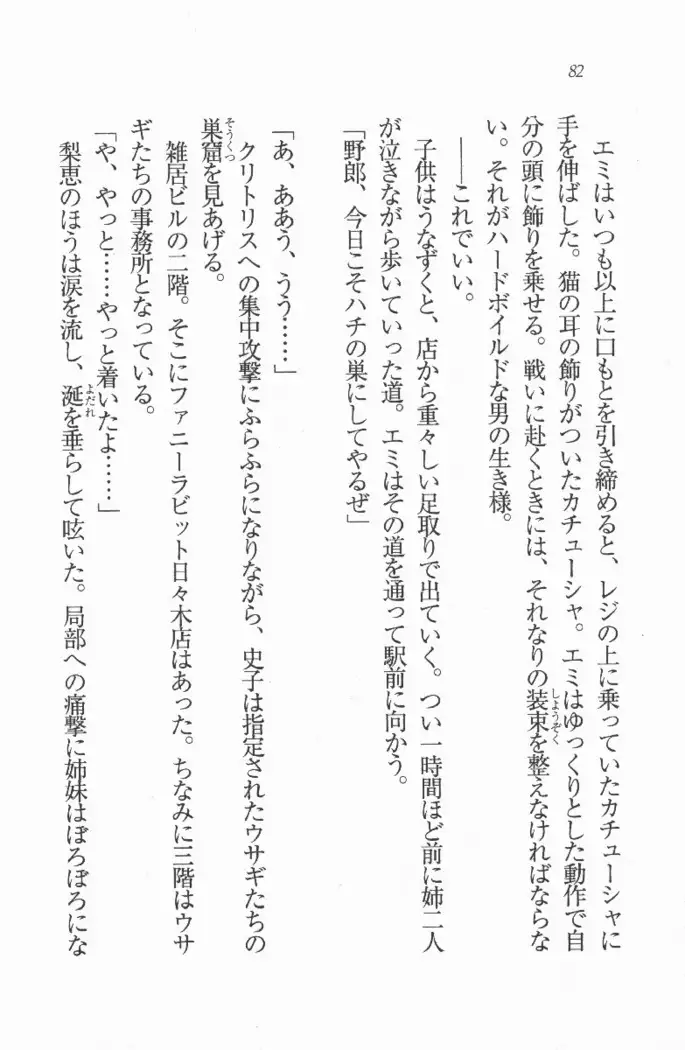 82
エミはいつも以上に口もとを引き締めると、レジの上に乗っていたカチューシャに
手を伸ばした。猫の耳の飾りがついたカチューシャ。エミはゆっくりとした動作で自
分の頭に飾りを乗せる。戦いに赴くときには、それなりの装束を整えなければならな
しようぞく
い。それがハードボイルドな男の生き様。
――これでいい。
子供はうなずくと、店から重々しい足取りで出ていく。つい一時間ほど前に姉二人
が泣きながら歩いていった道。エミはその道を通って駅前に向かう。
「野郎、今日こそハチの巣にしてやるぜ」
「あ、ああう、うう……」
クリトリスへの集中攻撃にふらふらになりながら、史子は指定されたウサギたちの
巣窟を見あげる。
そうくつ
雑居ビルの二階。そこにファニーラビット日々木店はあった。ちなみに三階はウサ
ギたちの事務所となっている。
「や、やっと……やっと着いたよ……」
梨恵のほうは涙を流し、涎を垂らして呟いた。局部への痛撃に姉妹はぼろぼろにな
よだれ